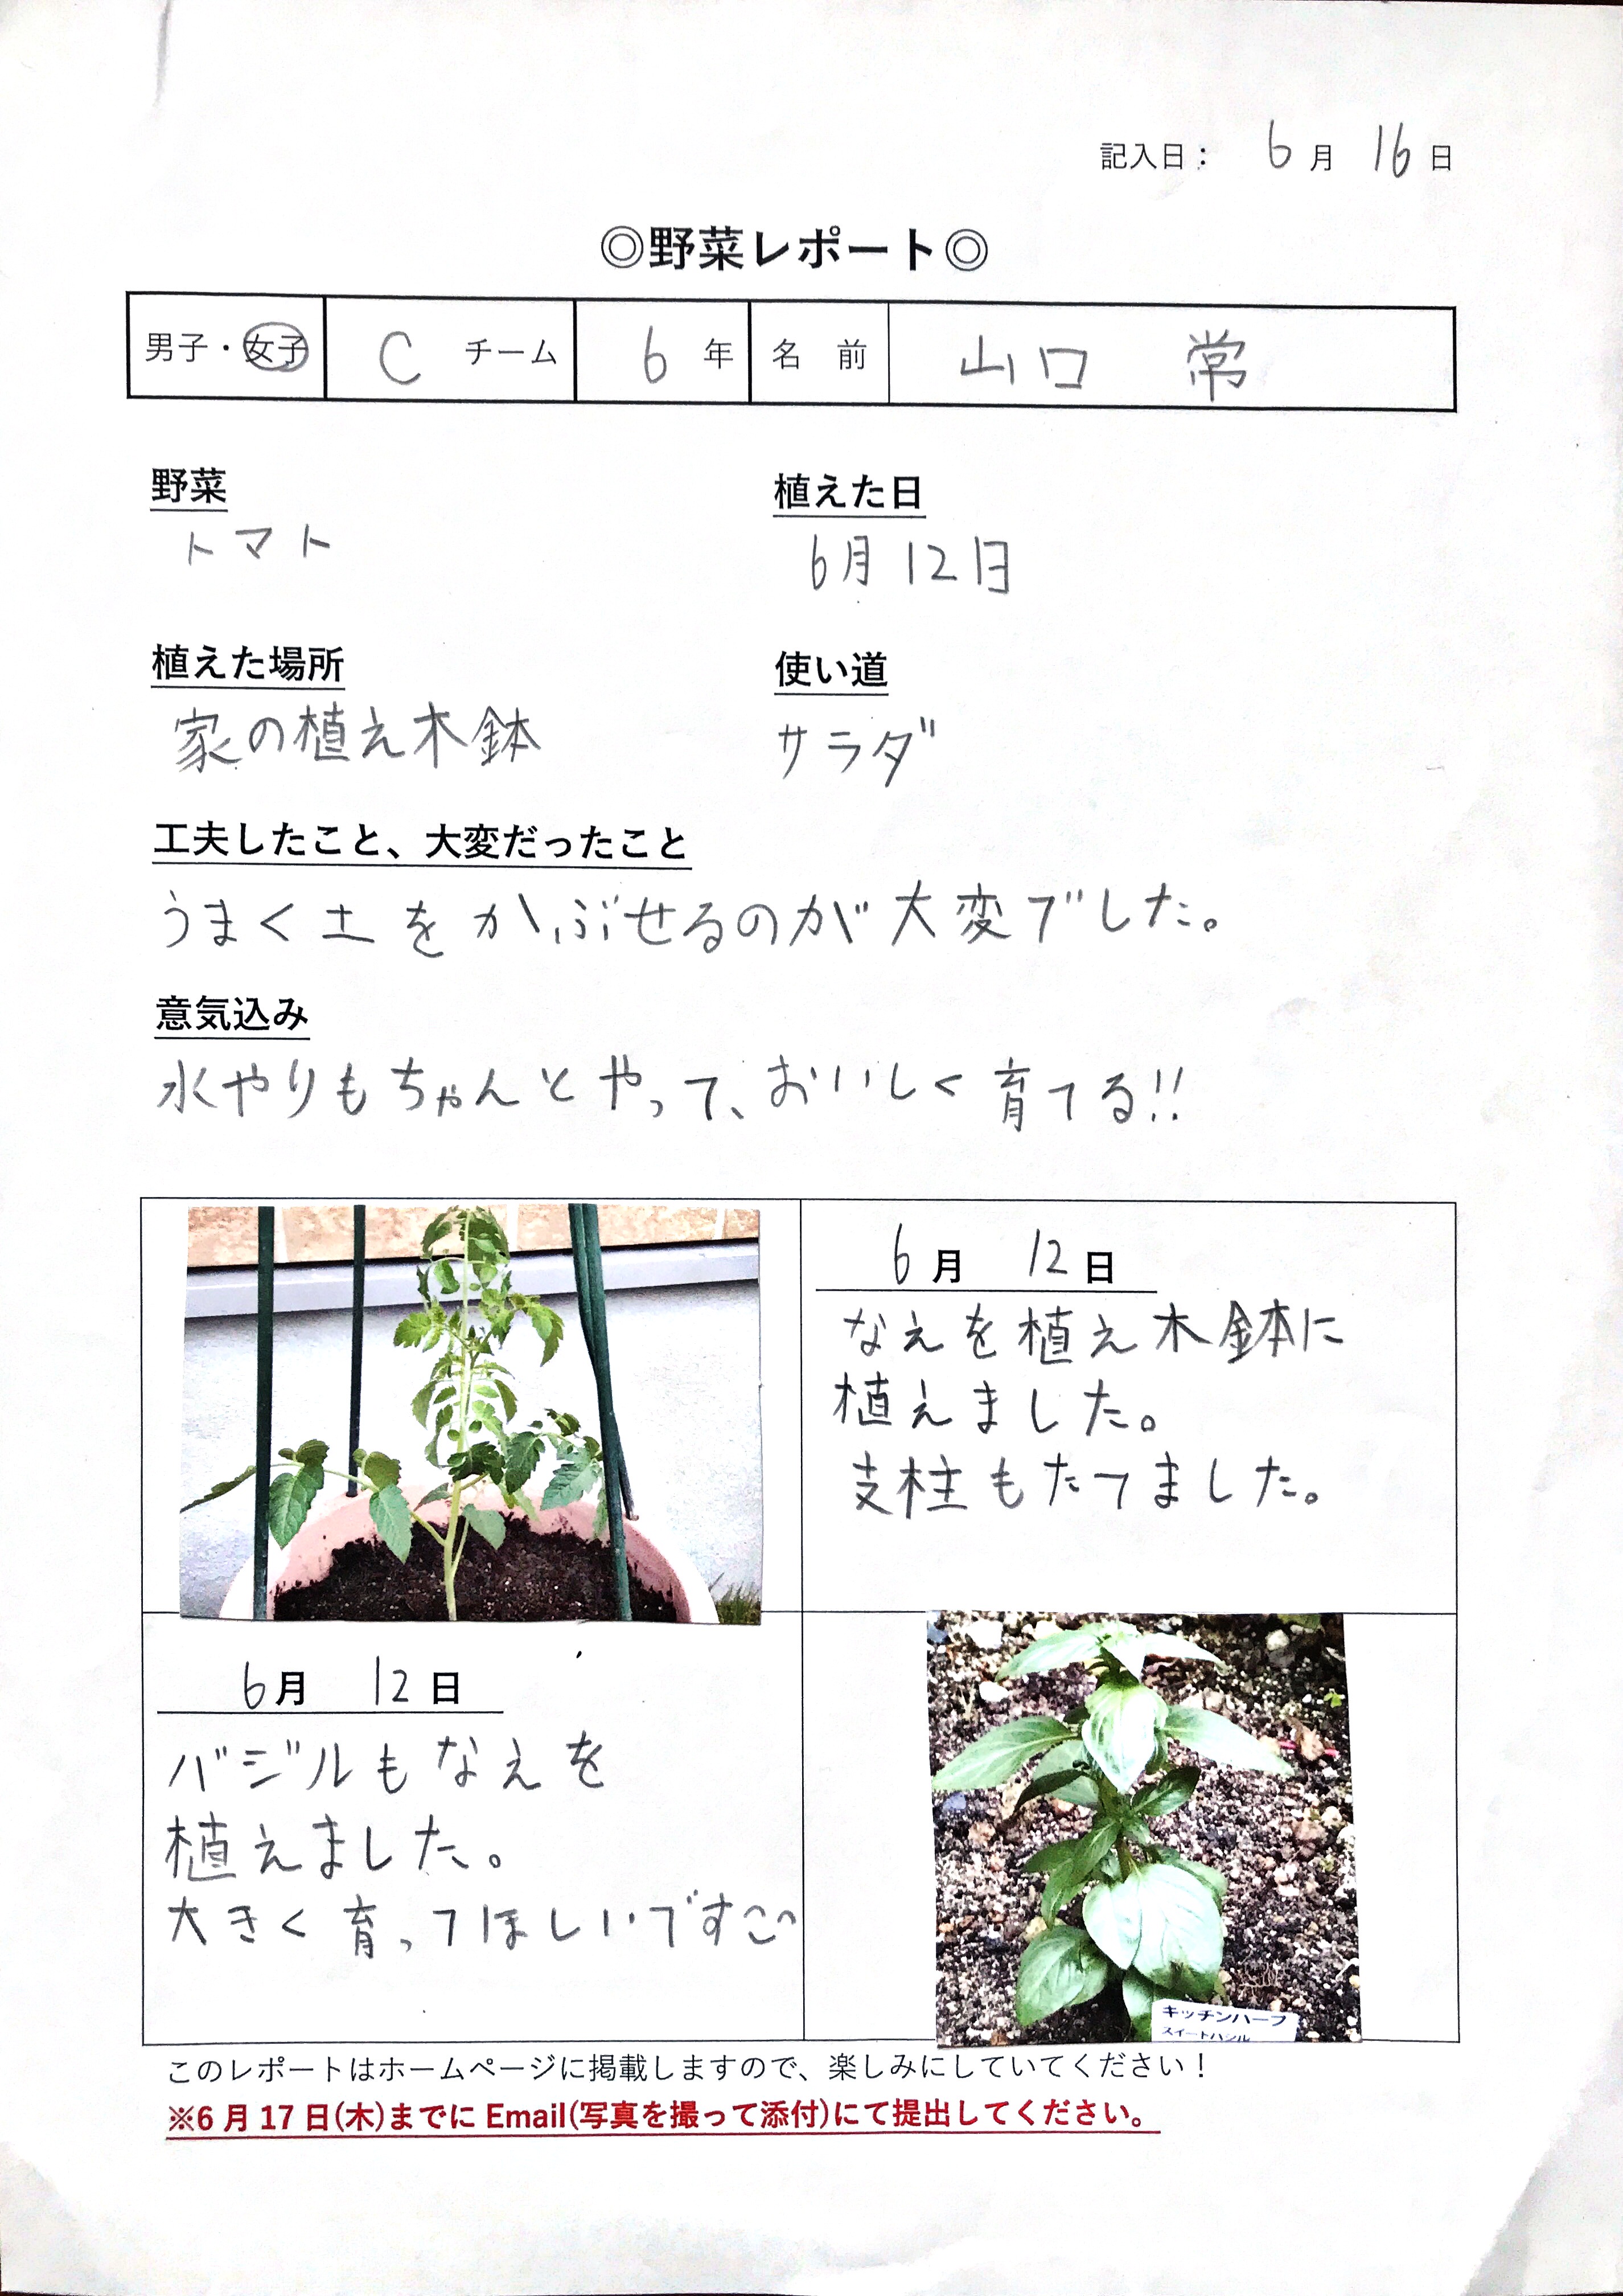 記入日： 6月 16日
◎野菜レポート◎
男子・女子 C チーム 6 年 名 前 山口 常
野菜 植えた日
トマト 6月12日
植えた場所 使い道
家の植え木鉢 サラダ
工夫したこと、大変だったこと
うまく土をかぶせるのが大変でした。
意気込み
水やりもちゃんとやって、おいしく育てる!!
6月 12日
なえを植え木鉢に
植えました。
支柱もたてました。
6月 12日
バジルもなえを
植えました。
大きく育ってほしいです
キッチンハーブ
スイートバジル
このレポートはホームページに掲載しますので、楽しみにしていてください！
※6月17日(木)までにEmail(写真を撮って添付)にて提出してください。